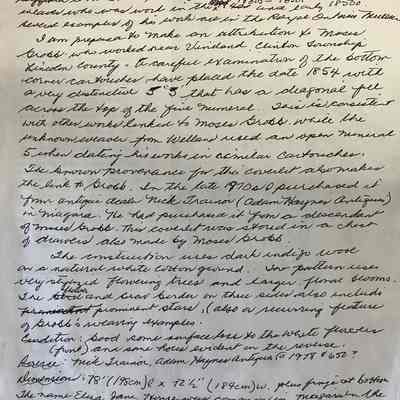 several examples of his work are in the Royal Ontario Museum
I am prepared to make an attribution to Moses
Grobb who worked near Vineland, Clinton Township
Lincoln County. A careful examination of the bottom
corner cartouches have placed the date 1854 with
a very distinctive 5 "5" that has a diagonal fill
across the top of the five numeral. This is consistent
with other works linked to Moses Grobb, while the
unknown weaver from Welland used an open numeral
5 when dating his works in similar cartouches.
The known provenance for this coverlet also makes
the link to Grobb. In the late 1970s I purchased it
from antique dealer Nick Trainor (Adam Haynes Antiques)
in Niagara. He had purchased it from a descendant
of Moses Grobb. This coverlet was stored in a chest
of drawers also made by Moses Grobb.
The construction uses dark indigo wool
on a natural white cotton ground. The pattern uses
very stylized flowering trees and larger floral blooms.
The and border on three sides also include
prominent stars, (also a recurring feature
of Grobb's weaving examples.
Condition: Good some surface loss to the white
(front) and some holes evident on the reverse.
Source: Nick Trainor, Adam Haynes Antiques @ 1978 $650?
Dimensions: 78" (198cm) l x 72 ½" (184cm) w. plus fringe at bottom
The name Eliza Jane